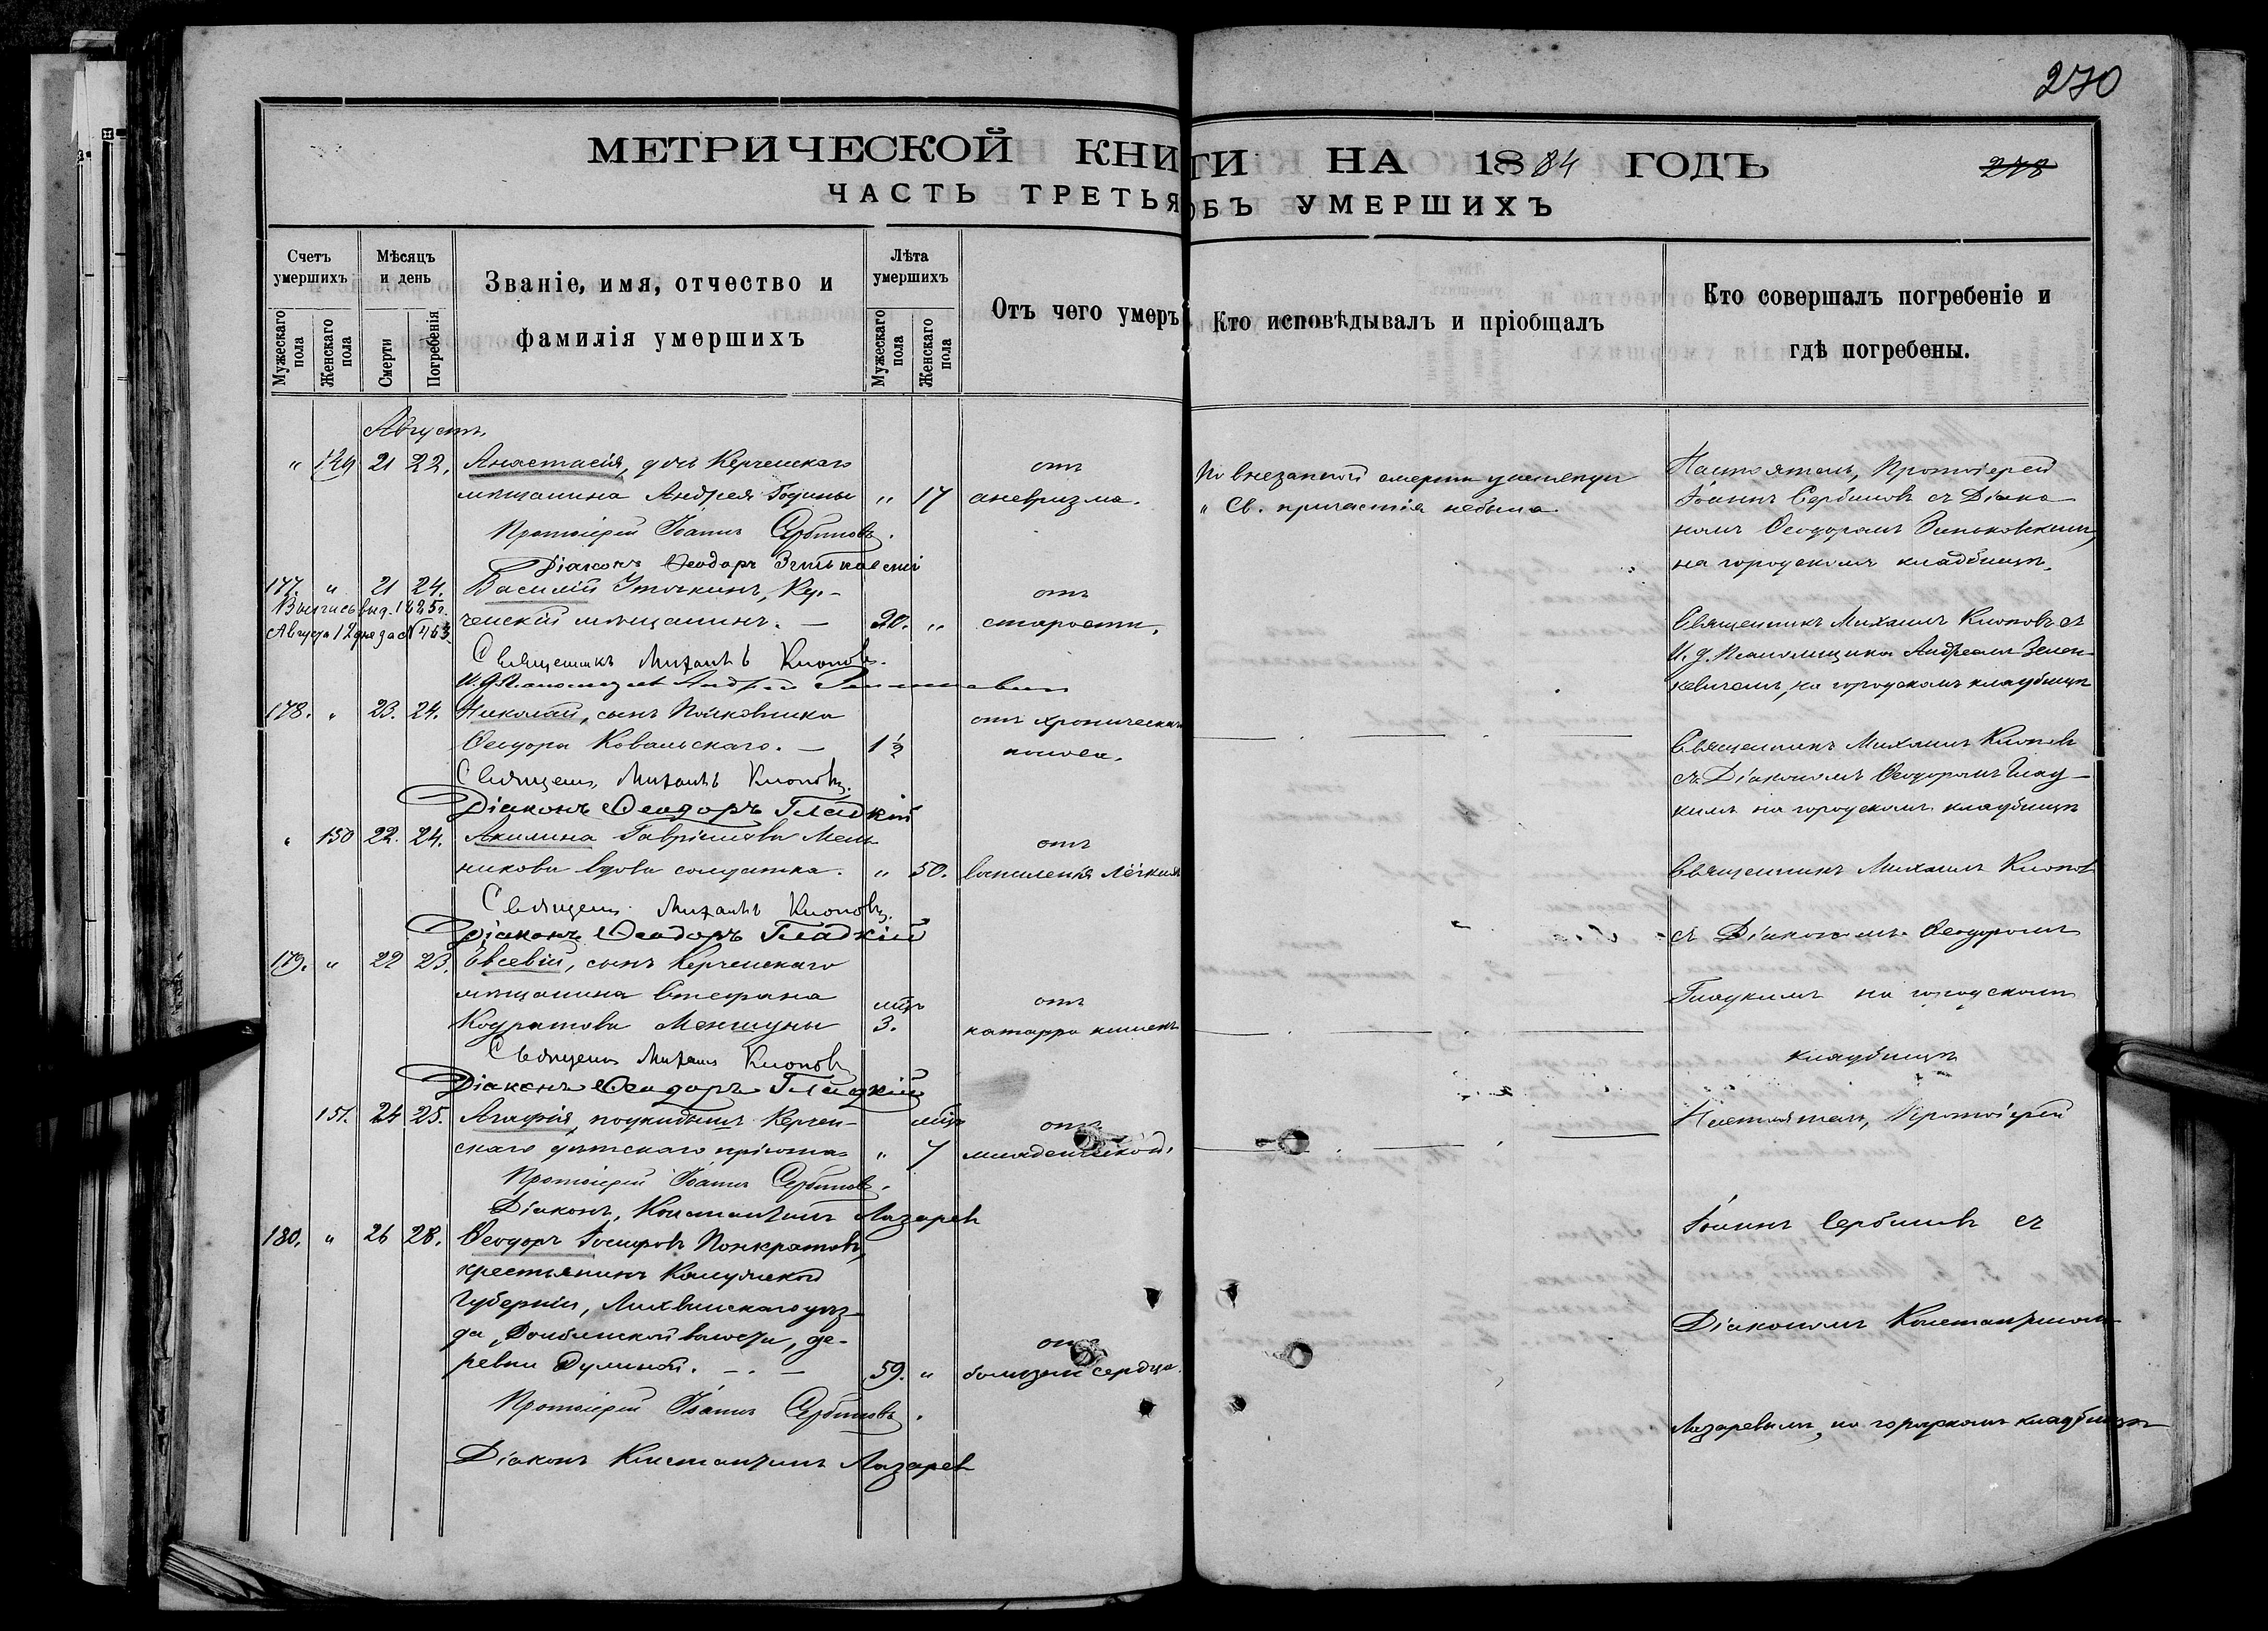 270
МЕТРИЧЕСКОЙ КНИГИ НА 1884 ГОДЪ
278
ЧАСТЬ ТРЕТЬЯ ОБЪ УМЕРШИХЪ
Счетъ умершихъ
Мужескаго пола
Женскаго пола
Мѣсяцъ и день
Смерти
Погребенія
Званіе, имя, отчество и
фамилія умершихъ
Лѣта умершихъ
Мужескаго пола
Женскаго пола
Отъ чего умеръ
Кто исповѣдывалъ и пріобщалъ
Кто совершалъ погребеніе и
гдѣ погребены.
Августъ.
" 149 21 22. Анастасія, дочь Керченскаго
мѣщанина Андрея Годины " 17
отъ
аневризма.
По внезапной смерти
" Св. причастія небыла
Настоятель, Протоіерей
Іоаннъ Сербиновъ съ Діако-
номъ Ѳеодоромъ Зеньковскимъ,
на городскомъ кладбищѣ.
Протоіерей Іоаннъ Сербиновъ.
Діаконъ Ѳеодоръ Зеньковскій
177. " 21 24. Василій Уточкинъ, Кер-
ченскій мѣщанинъ. — 90. "
отъ
старости.
Выпись выд. 1885 г.
Августа 12 дня за № 453
Священникъ Михаилъ Клоповъ съ
И. д. Псаломщика Андреемъ Зелен-
кевичемъ, на городскомъ кладбищѣ
Священникъ Михаилъ Клоповъ.
И. д. Псаломщика Андрей
178. " 23. 24. Николай, сынъ Полковника
Ѳеодора Ковальскаго. — 1½
отъ хроническаго
поноса.
Священникъ Михаилъ Клоповъ
съ Діакономъ Ѳеодоромъ Глад-
кимъ на городскомъ кладбищѣ
Священ. Михаилъ Клоповъ.
Діаконъ Ѳеодоръ Гладкій
" 150 22. 24. Акилина Гавріилова Мель-
никова вдова солдатка. " 50.
отъ
воспаленія лёгкихъ
Священникъ Михаилъ Клоповъ
съ Діакономъ Ѳеодоромъ
Гладкимъ на городскомъ
кладбищѣ
Священ. Михаилъ Клоповъ.
Діаконъ Ѳеодоръ Гладкій
179. " 22 23. Евсевій, сынъ Керченскаго
мѣщанина Стефана
Кодратова Менжуны
мѣс.
3.
отъ
катарра кишекъ
Священ. Михаилъ Клоповъ
Діаконъ Ѳеодоръ Гладкій
151. 24 25. Агафія, подкидышъ Керчен-
скаго дѣтскаго пріюта " 7
мѣс.
отъ
младенческой.
Настоятель, Протоіерей
Іоаннъ Сербиновъ съ
Діакономъ Константиномъ
Лазаревымъ, на городскомъ кладбищѣ
Протоіерей Іоаннъ Сербиновъ.
Діаконъ, Константинъ Лазаревъ
180. " 26 28. Ѳеодоръ Іосифовъ Понкратовъ,
крестьянинъ Калужской
Губерніи, Лихвинскаго уѣз-
да, волости, де-
ревни Думиной. — 59. "
отъ
болѣзни сердца.
Протоіерей Іоаннъ Сербиновъ.
Діаконъ Константинъ Лазаревъ